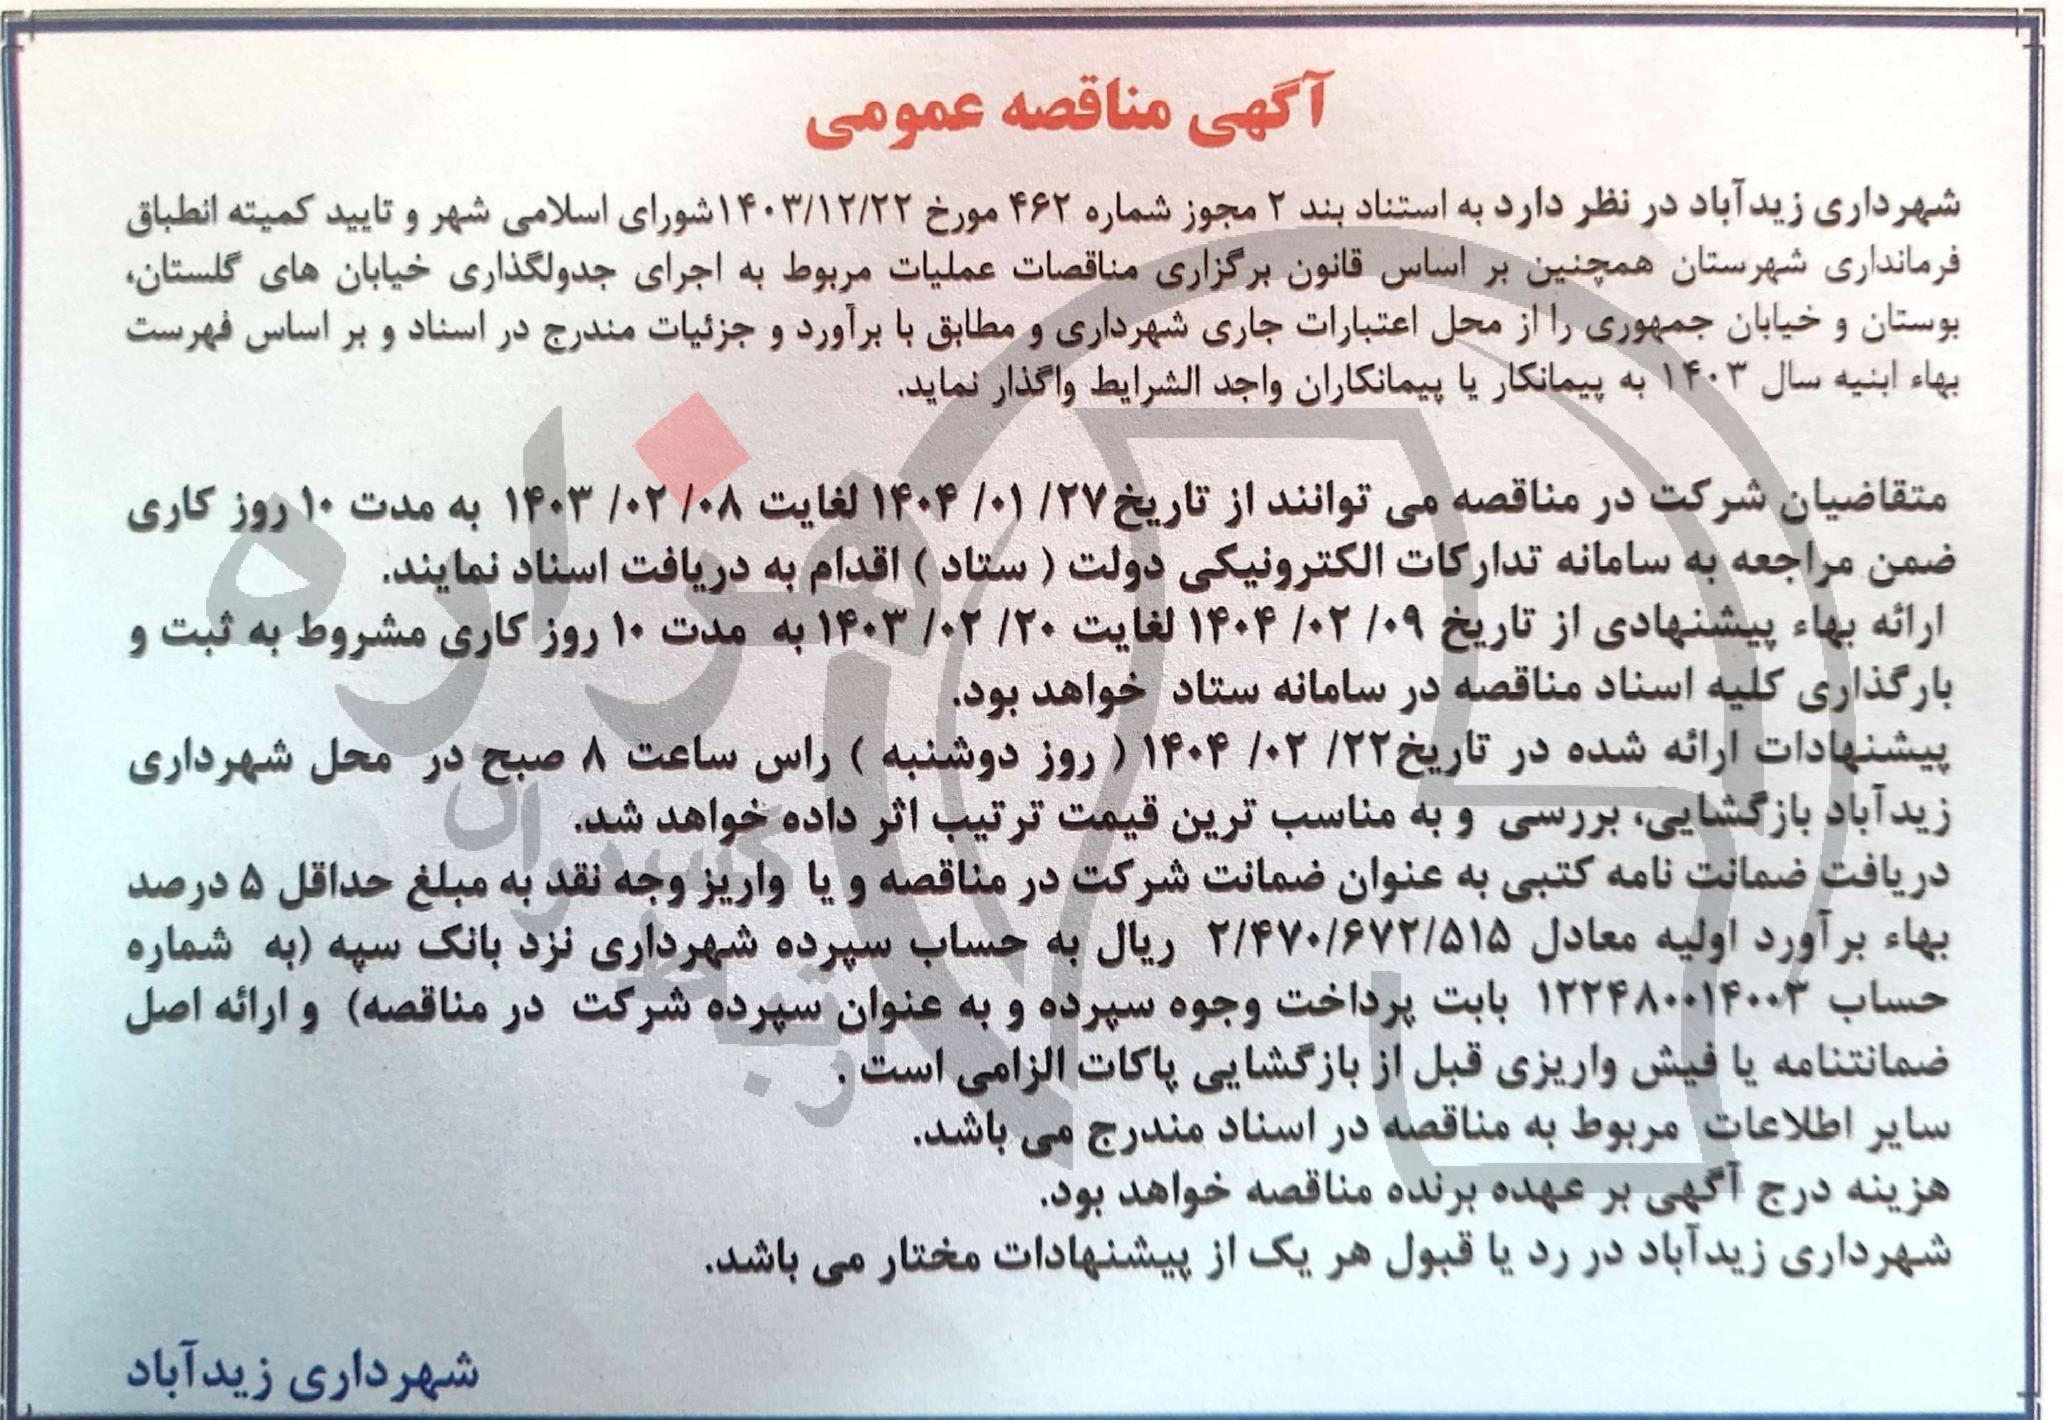 آگهی مناقصه عمومی
شهرداری زیدآباد در نظر دارد به استناد بند ۲ مجوز شماره ۴۶۲ مورخ ۱۴۰۳/۱۲/۲۲شورای اسلامی شهر و تایید کمیته انطباق
فرمانداری شهرستان همچنین بر اساس قانون برگزاری مناقصات عملیات مربوط به اجرای جدولگذاری خیابان های گلستان،
بوستان و خیابان جمهوری را از محل اعتبارات جاری شهرداری و مطابق با برآورد و جزئیات مندرج در اسناد و بر اساس فهرست
بهاء ابنیه سال ۱۴۰۳ به پیمانکار یا پیمانکاران واجد الشرایط واگذار نماید.
متقاضیان شرکت در مناقصه می توانند از تاریخ۲۷/ ۰۱/ ۱۴۰۴ لغایت ۰۸/ ۰۲/ ۱۴۰۳ به مدت ۱۰ روز کاری
ضمن مراجعه به سامانه تدارکات الکترونیکی دولت ( ستاد ) اقدام به دریافت اسناد نمایند.
ارائه بهاء پیشنهادی از تاریخ ۰۹/ ۰۲/ ۱۴۰۴ لغایت ۲۰/ ۰۲/ ۱۴۰۳ به مدت ۱۰ روز کاری مشروط به ثبت و
بارگذاری کلیه اسناد مناقصه در سامانه ستاد خواهد بود.
پیشنهادات ارائه شده در تاریخ۲۲/ ۰۲/ ۱۴۰۴ ( روز دوشنبه ) راس ساعت ۸ صبح در محل شهرداری
زیدآباد بازگشایی، بررسی و به مناسب ترین قیمت ترتیب اثر داده خواهد شد.
دریافت ضمانت نامه کتبی به عنوان ضمانت شرکت در مناقصه و یا واریز وجه نقد به مبلغ حداقل ۵ درصد
بهاء برآورد اولیه معادل ۲/۴۷۰/۶۷۲/۵۱۵ ریال به حساب سپرده شهرداری نزد بانک سپه (به شماره
حساب ۱۲۲۴۸۰۰۱۴۰۰۳ بابت پرداخت وجوه سپرده و به عنوان سپرده شرکت در مناقصه) و ارائه اصل
ضمانتنامه یا فیش واریزی قبل از بازگشایی پاکات الزامی است .
سایر اطلاعات مربوط به مناقصه در اسناد مندرج می باشد.
هزینه درج آگهی بر عهده برنده مناقصه خواهد بود.
شهرداری زیدآباد در رد یا قبول هر یک از پیشنهادات مختار می باشد.
شهرداری زیدآباد